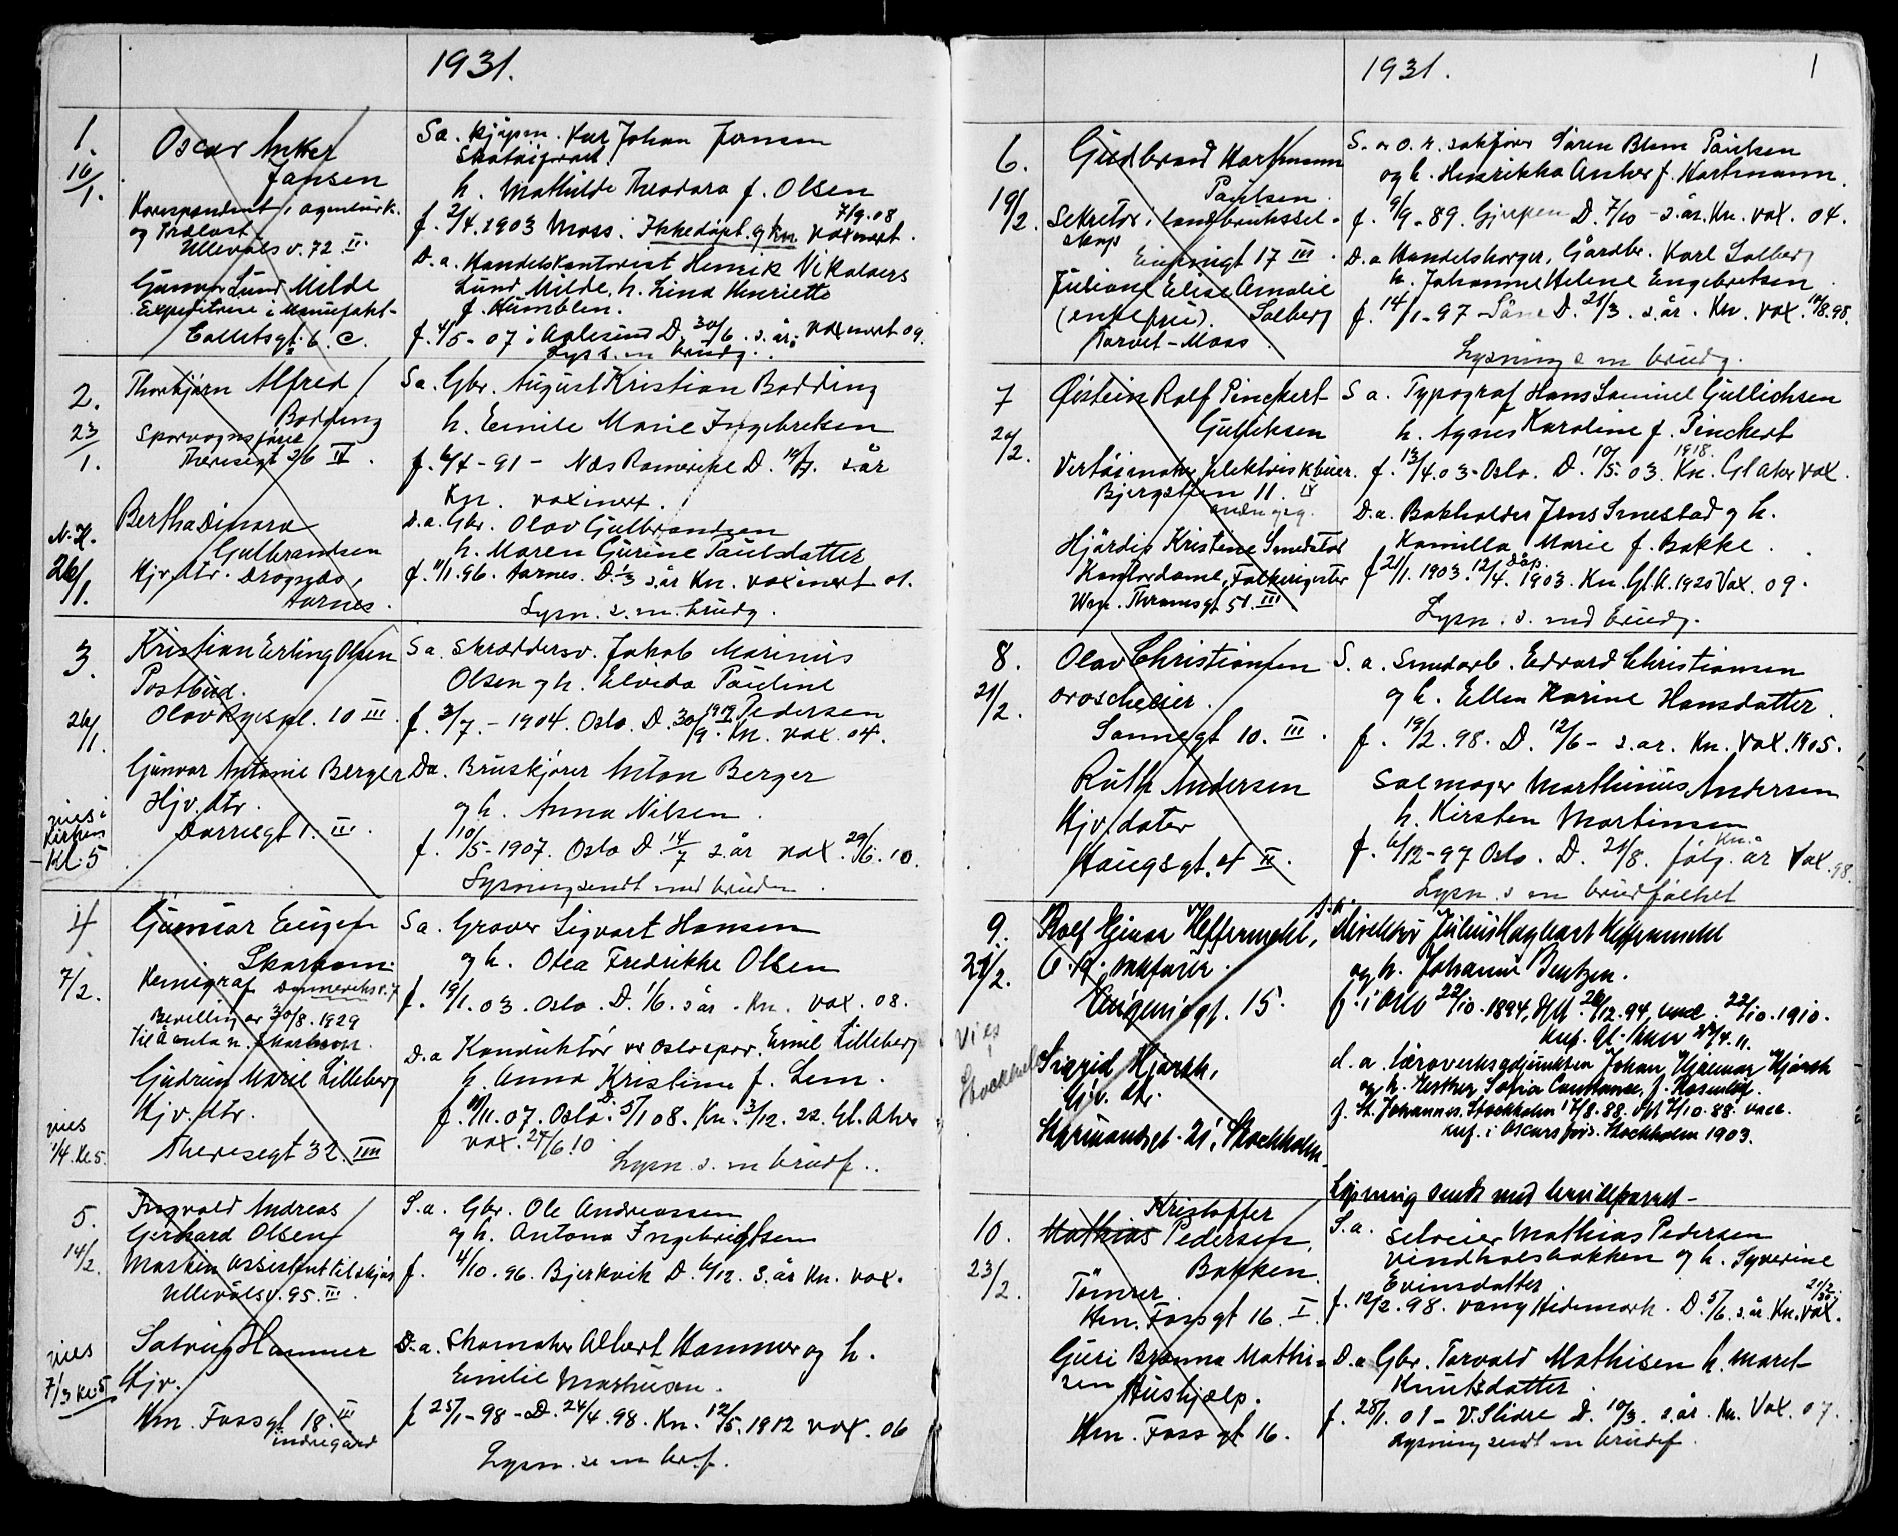 1931.
1.
16/1.
Oscar Anker
Jansen
Korrespondent i agenturk.
og Trælast
Ullevåls v. 72 II
Gunvor Lund Milde
Expeditrice i Manufakt-
Colletsgt. 6. C.
Sa. Karl Johan Jansen
h. Mathilde Theodora f. Olsen
7/9.08
f. 2/4.1903 Moss. Ikke døpt. og Kn. vax inert.
D.a. Handelskontorist Henrik Nikolaers
Lund Milde, h. Lina Henriette
f. Humblen.
f. 4/5-07 i Aalesund D. 30/6. s. år. vax inert 09.
Lys s. m brudg.
2.
23/1.
Thorbjørn Alfred
Bodding
Sporvognsfører
Theresegt 36 IV.
Sa. Gbr. August Kristian Bodding
h. Emilie Marie Ingebretsen
f. 6/4-91 - Næs Romerike D. 19/7. s. år
Kn. vax inert.
N.H.
26/1.
Bertha Dinara
Gulbrandsen
Hjv. dtr. Drognes,
Aarnes.
D.a. Gbr. Olav Gulbrandsen
h. Maren Gurine Paulsdatter
f. 11/1.96. Aarnes. D. 1/3 s. år Kn. vax inert 01.
Lysn. s. m. brudg.
3.
26/1.
Kristian Erling Olsen
Postbud.
Olav Ryespl. 10 III.
Sa. Skræddersv. Jakob Marinius
Olsen og h. Elvida Pauline
Pedersen
f. 3/7.-1904. Oslo. D. 30/9. 1919 Kn. vax. 04.
Gunvor Antonie Berger
Hjv. dtr.
Darresgt 1. III.
vies i
Kirken
kl. 5
Da. Bruskjører Anton Berger
og h. Anna Nilsen.
f. 10/5-1907. Oslo D 14/7 s. år vax. 29/6.10.
Lysning sendt med bruden.
4.
7/2.
Gunnar Eugen
Skarbom
Kemigraf Danmarks v. 7
Bevilling av 30/8.1929
Til å anta n. Skarbom.
Sa. Graver Sigvart Hansen
og h. Otea Fredrikke Olsen
f. 19/1.03. Oslo. D. 1/6. s år. Kn. vax. 08.
Gudrun Marie Lilleberg
Hjv. dtr.
Theresegt 32. IIII
vies
1/4. Kl 5.
D.a Konduktør ved Oslo spor. Emil Lilleberg
h. Anna Kristine f. Lem.
f. 11/11.07. Oslo. D. 5/1 08. Kn. 3/12. 22. Gl. Aker
vax. 24/6.10
Lysn. s. m brudf..
5.
14/2.
Ingvald Andreas
Gerhard Olsen
Maskin assistent til skjøs
Ullevålsv. 95. III
S.a. Gbr. Ole Andreassen
og h. Antona Ingebrigtsen
f. 4/10.96. Bjerkvik D. 6/12. s. år Kn. vax.
vies
7/3 kl 5
Solveig Hammer
Hjv.
Hm. Fossgt 18. III
indregård
D.a. Skomaker Albert Hammer og h.
Emilie Mathisen.
f. 25/1-98 - D. 24/4.98. Kn. 12/5.1912 vax. 06
Lysn. s m br.f.
1931.
1
6.
19/2.
Gudbrand Hartmann
Paulsen
Sekretær i landbruksel-
skap
Eugeniegt 17 III.
S. av o. r. sakfører Søren Blom Paulsen
og h. Henrikka Anker f. Hartmann.
f. 9/9-89. Gjerpen D. 7/10 - s. år. Kn. vax. 04.
Juliane Elise Amalie
(enkefrue). Solberg
Torvet - Moss.
D.a Handelsborger, Gårdbr. Karl Solberg
h. Johanne Helene Engebretsen
f. 14/1-97 - Såne D. 21/3. s. år. Kn. vax. 10/8.98.
Lysning s m brudg.
7
20/2.
Øistein Rolf Pinckert
Gulliksen
Vertøimaker Elektrisk bur.
Bjergstien 11. IV
S a. Typograf Hans Samuel Gullichsen
h. Agnes Karoline f. Pinckert
f. 13/4.03 - Oslo. D. 10/5.03. Kn. 1918. Gl Aker vax.
Hjørdis Kristene Smestad
Kontordame, Folkeregister
Wm. Thranesgt 51. III
D.a. Bokholder Jens Smestad og h.
Kamilla Marie f. Bakke.
f 21/1. 1903. 12/4. Døp. 1903. Kn. Gl. A. 1920 Vax. 09.
Lysn. s. med brudg.
8.
21/2.
Olav Christiansen
Droscheeier.
Sannergt 10. III.
S. a. Smedarb. Edvard Christiansen
og h. Ellen Karine Hansdatter.
f. 19/2. 98. D. 12/6 - s. ar. Kn. vax. 1905.
Ruth Andersen
Hjv. dater
Haugsgt. 4 II.
Salmager Marthinius Andersen
h. Kirsten Martinsen
f. 6/12-97 Oslo. D. 21/8. følg. år Kn. Vax. 98.
Lysn. s m brudfolket
9.
21/2.
Rolf Einar Heffermehl,
O.r. sakfører.
Eugeniegt. 15.
S.a. Direktør Julius Hagbart Heffermehl
og h. Johanne Bentzen.
f. i Oslo 22/10.1894, døpt 26/12.94, vacc. 22/10.1910.
konf. Gl. Aker 24/4.11.
Vies
i
Stockholm
Sigrid Hjorth,
Hjv. dtr.
21, Stockholm.
d. a. läroverksadjunkten Johan Hjalmar Hjorth
og h. Esther Sofia Constance, f. Rosenlöf.
f. St. Johannes. Stockholm 17/8.88, døpt 7/10.88. vacc.
konf. i Oscars förs. Stockholm 1903.
Lysning sendt med brudeparret -
10.
23/2.
Kristoffer
Mathias Pedersen
Bakken.
Tømrer.
Hm. Fossgt 16. I
S.a. Selveier Mathias Pedersen
Vindholsbakken og h. Syverine
Evinsdatter
f. 12/2.98. Vang Hedemark. D. 5/6. s. år. Kn. vax.
Guri Brønna Mathi-
sen Hushjælp.
Hm. Foss gt 16.
D.a Gbr. Torvald Mathisen h. Marit
Knutsdatter
f. 28/1. 01 - V. Slidre D. 10/3. s. år. Kn. Vax. 07.
Lysning sendt m brudef.